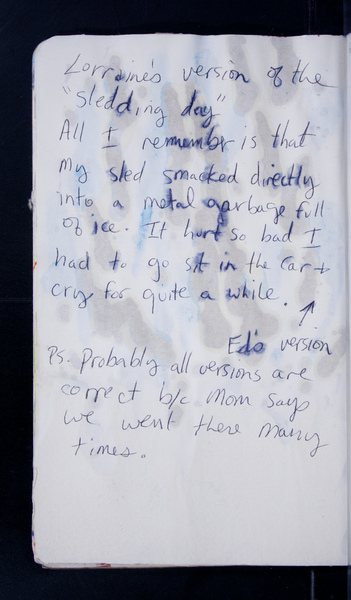 Lorraine's version of the
"sledding day"
All I remember is that
my sled smacked directly
into a metal garbage full
of ice. It hurt so bad I
had to go sit in the car +
cry for quite a while.
Ed's version
Ps. Probably all versions are
correct b/c Mom says
we went there many
times.